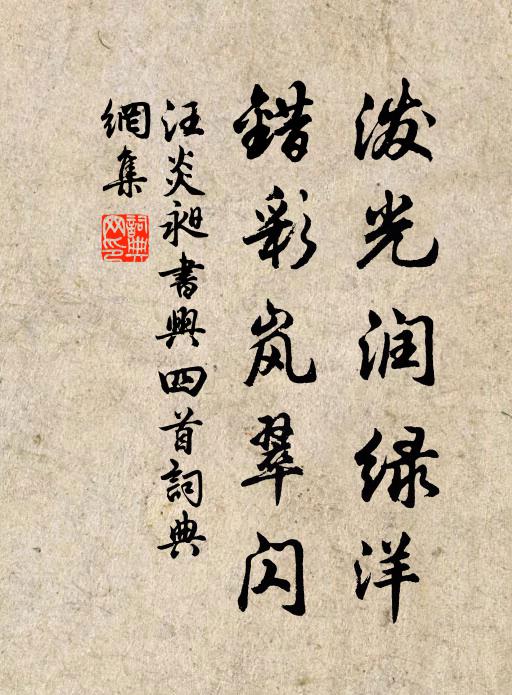 泼光润绿洋
错彩岚翠闪
汪炎昶書興四首詞典
網集
詞典
网印